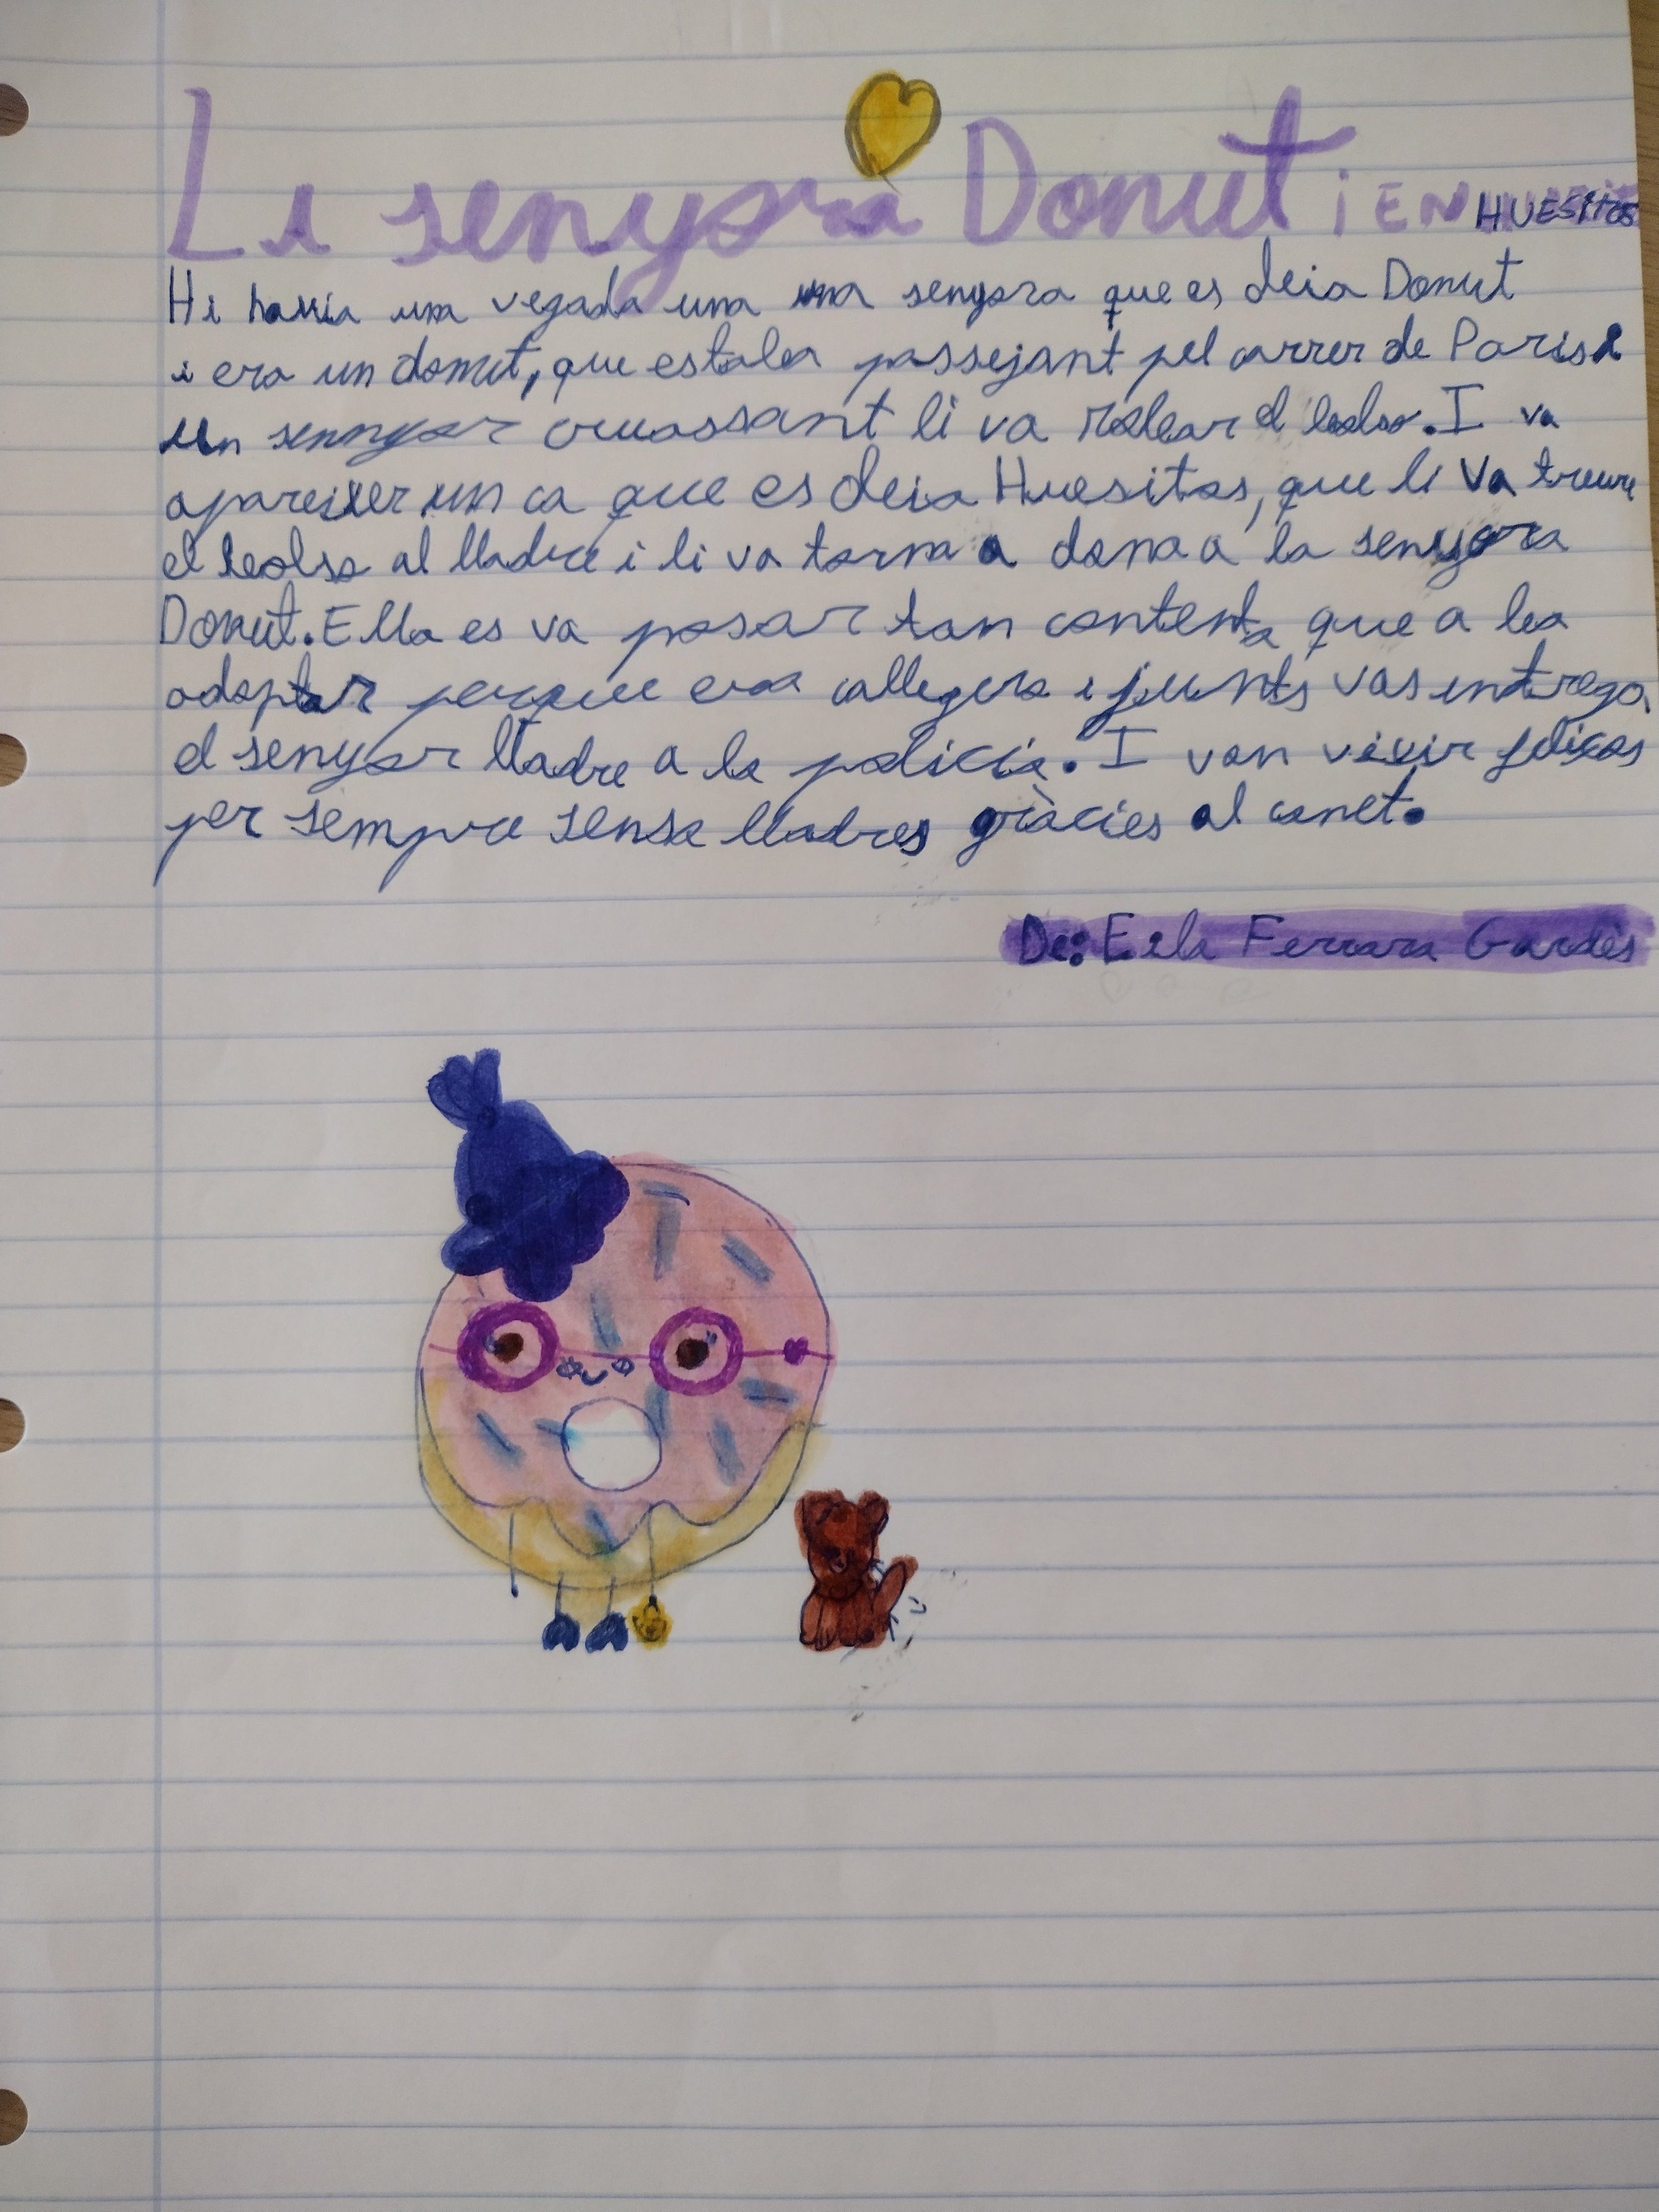 La senyora Donut i EN HUESITOS
Hi havia una vegada una una senyora que es deia Donut
i era un donut, que estaba passejant pel carrer de Paris i
un sennyor cruassant li va robar el bolso. I va
apareixer un ca que es deia Huesitos, que li va treure
el bolso al lladre i li va torna a dona a la senyora
Donut. Ella es va posar tan contenta que a lea
adoptar perque era callegera i junts vas entrega
el senyor lladre a la policia. I van vivir felices
per sempre sense lladres gràcies al canet.
De: Eila Ferrara Gardès